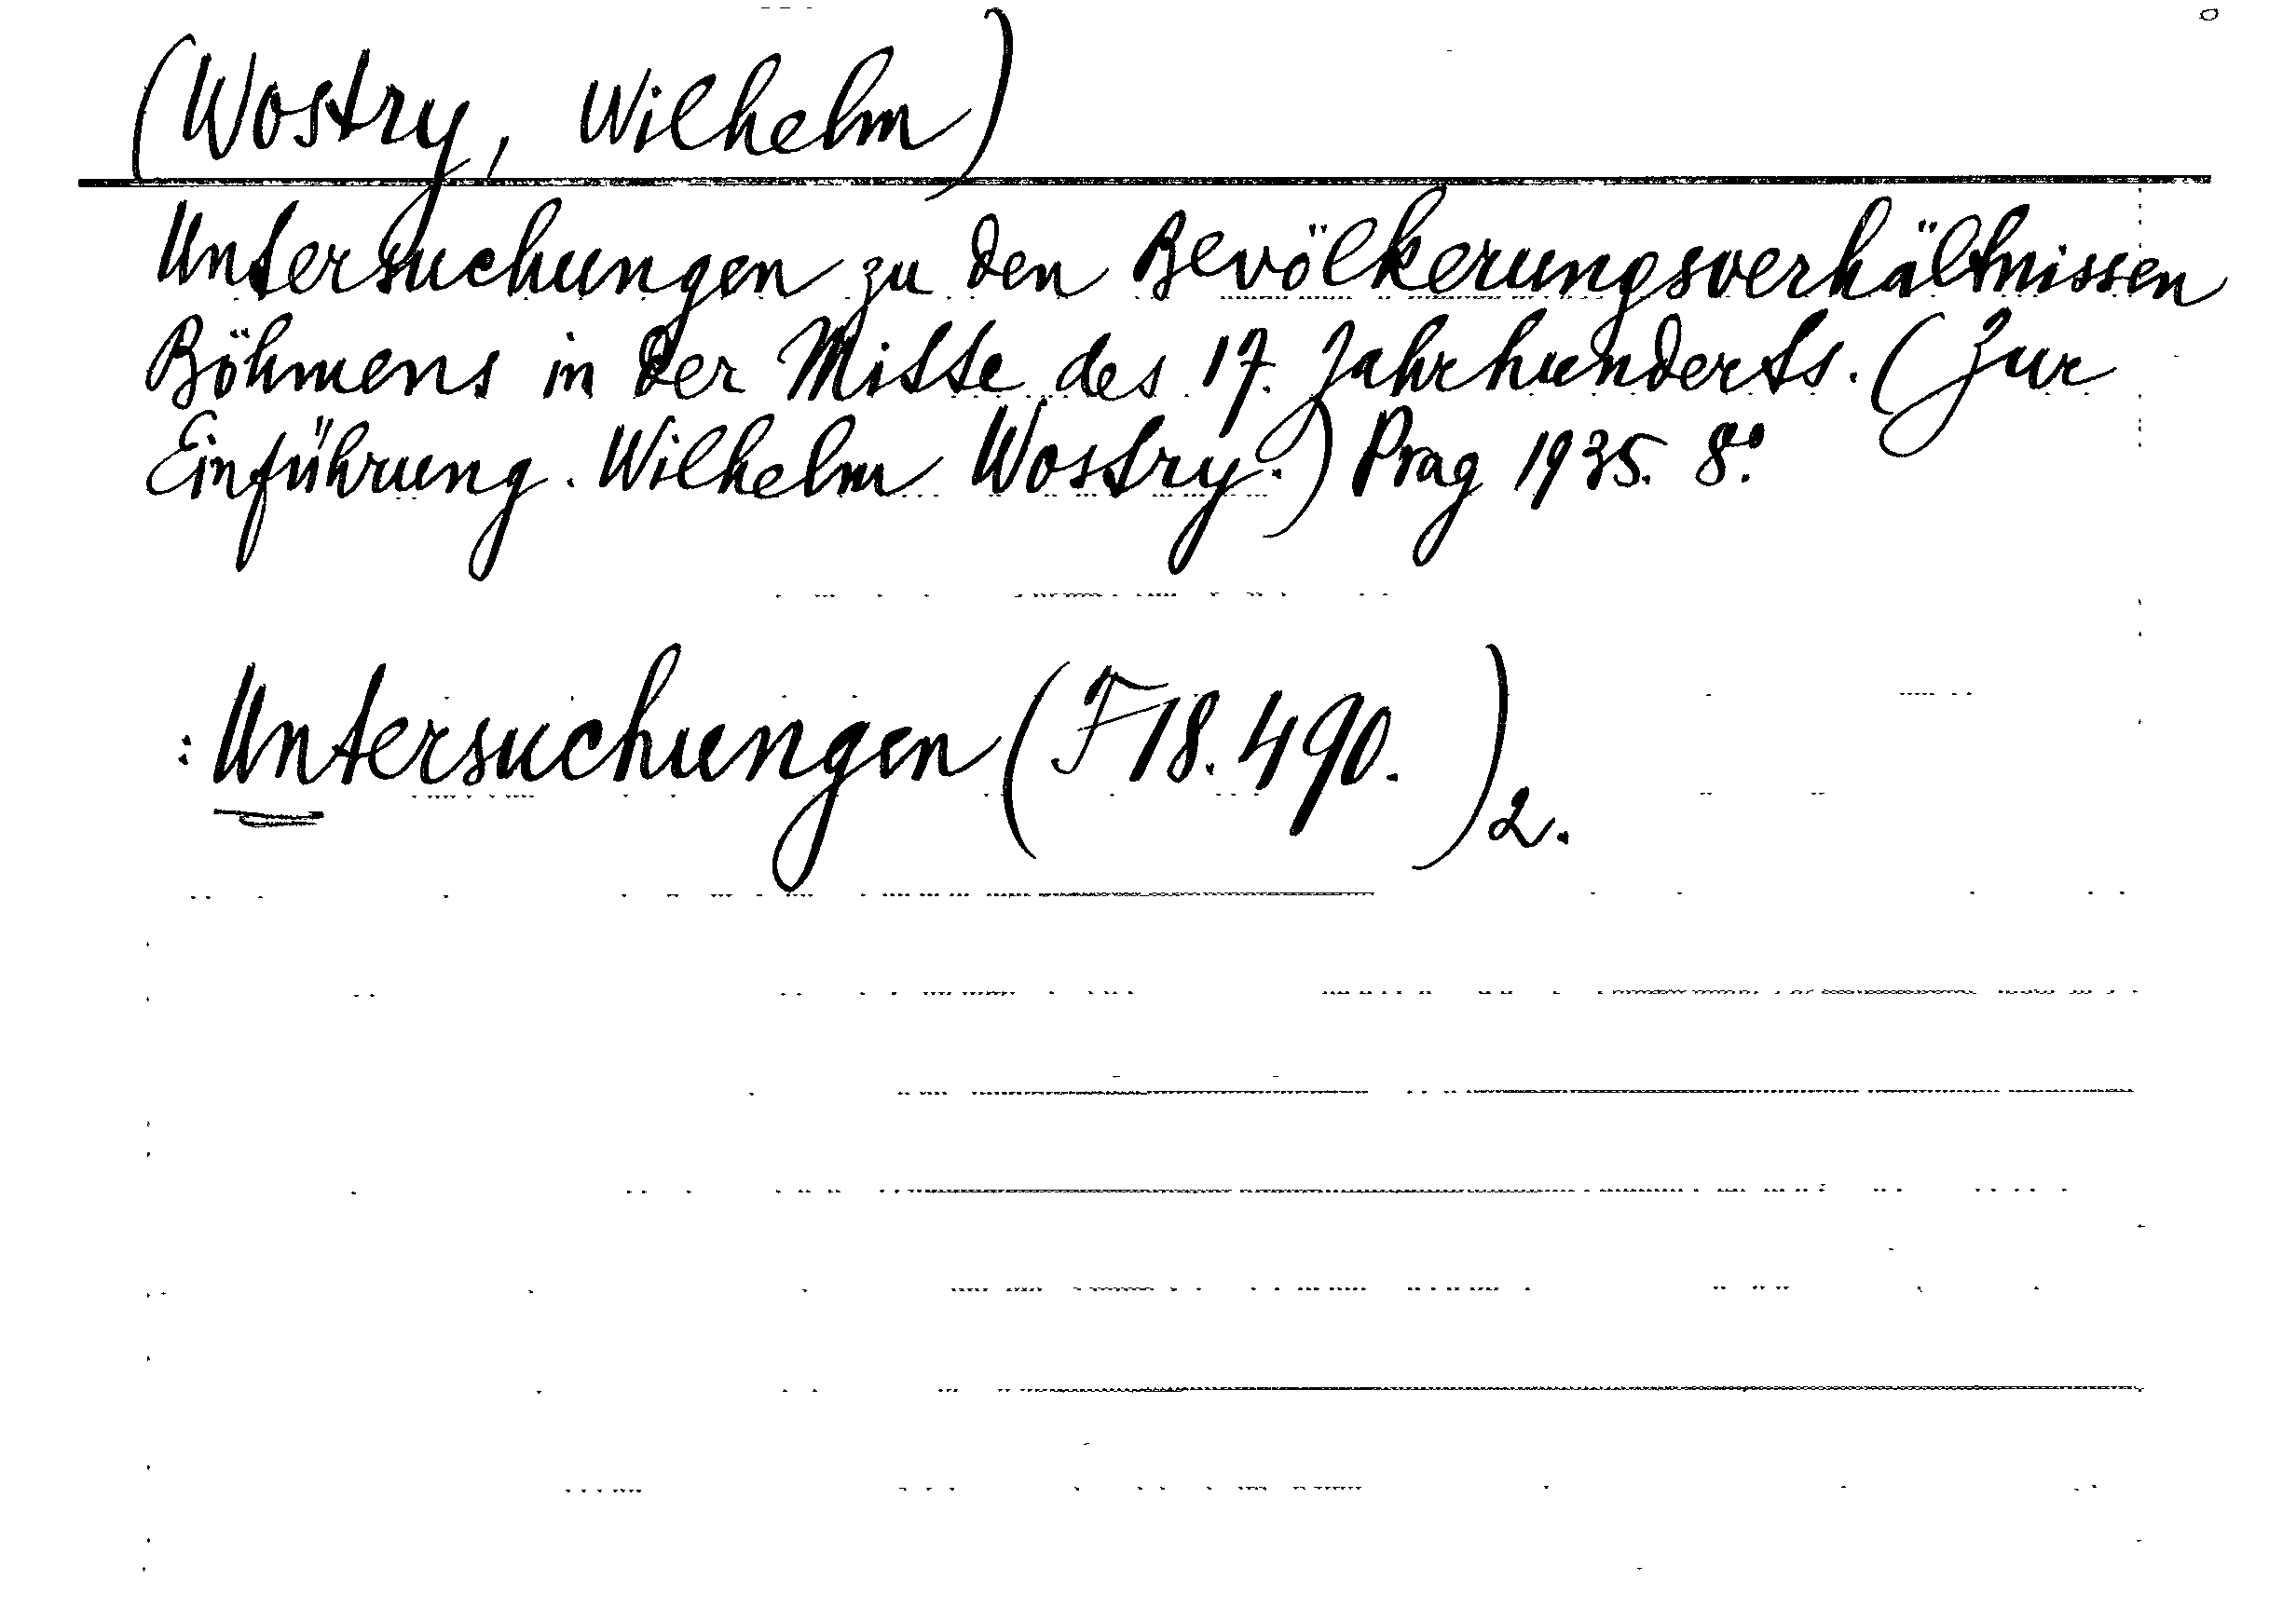 (Wostry, Wilhelm)
Untersuchungen zu den Bevölkerungsverhältnissen
Böhmens in der Mitte des 17. Jahrhunderts. (Zur
Einführung. Wilhelm Wostry.) Prag 1935. 8°.
: Untersuchungen (F 18.490.)2.